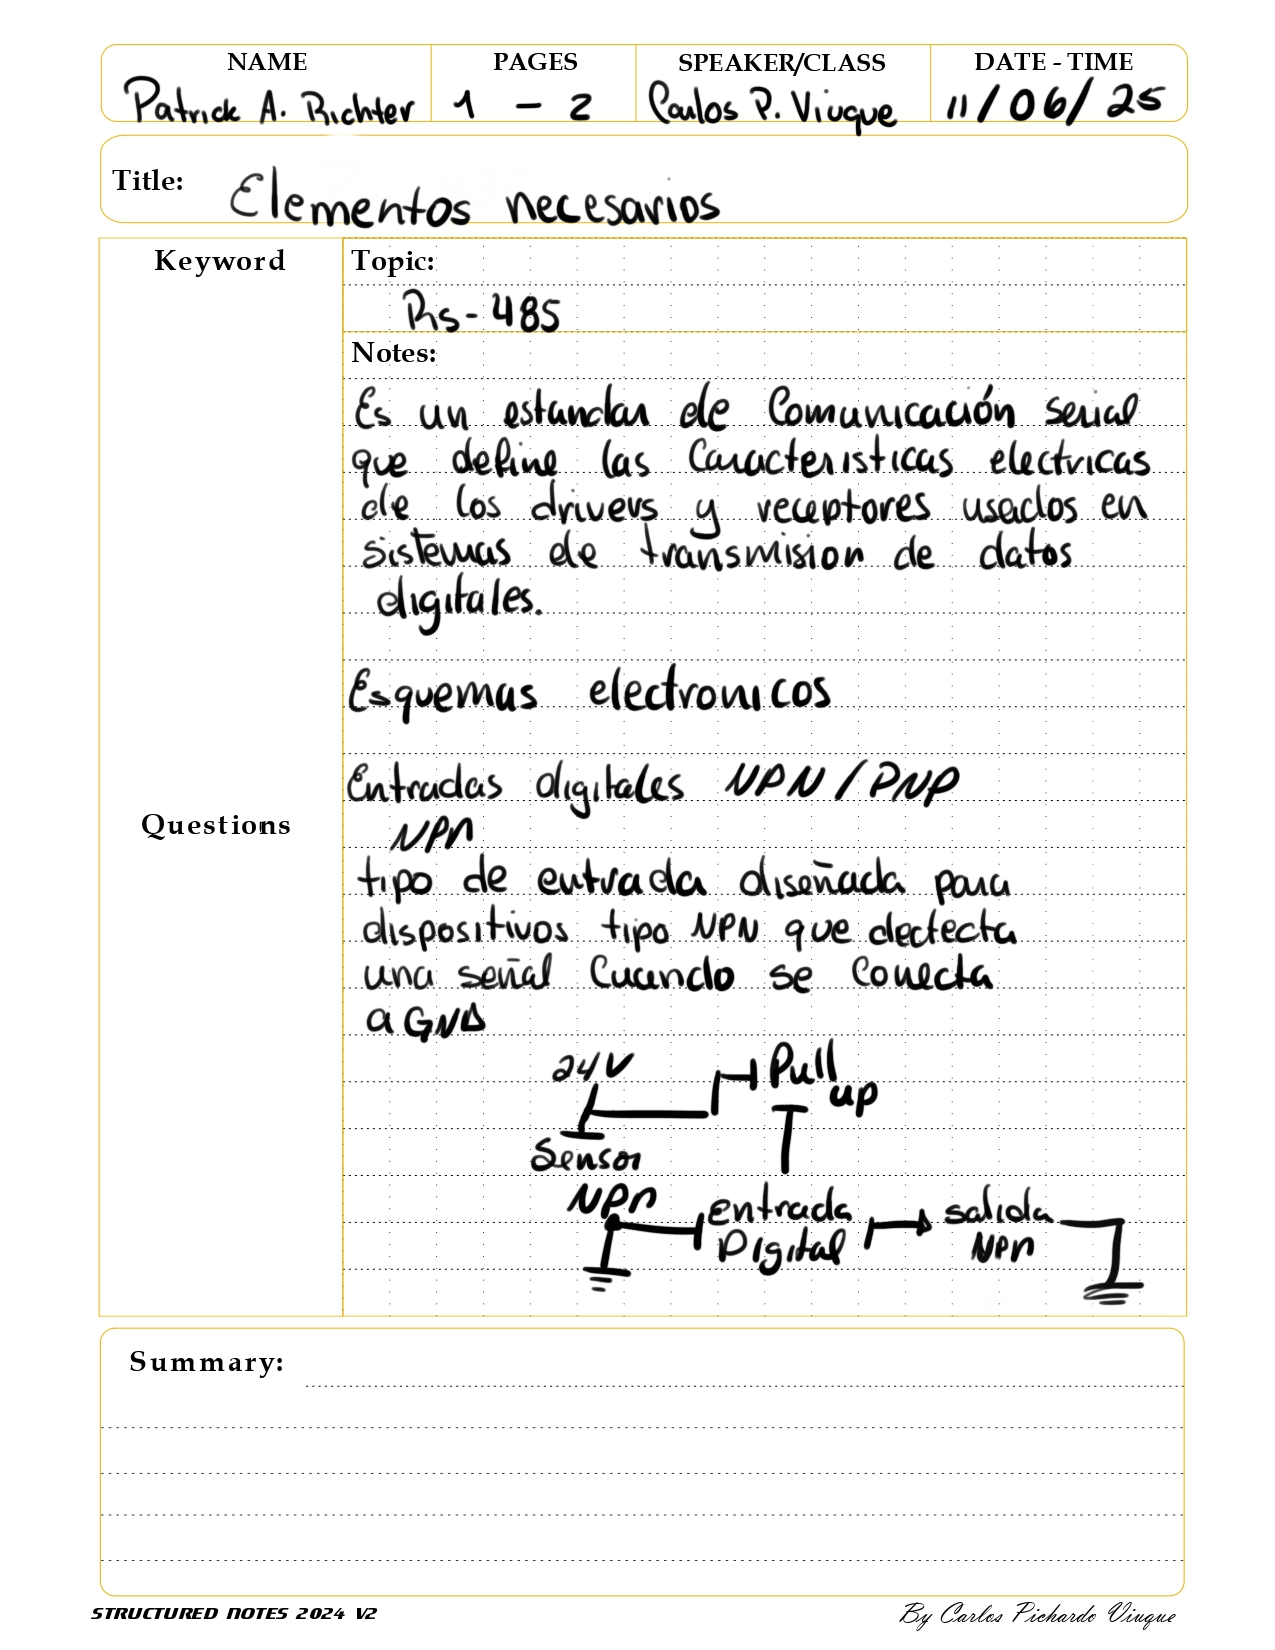 NAME PAGES SPEAKER/CLASS DATE - TIME
Patrick A. Richter 1 - 2 Carlos P. Viuque 11/06/25
Title: Elementos necesarios
Keyword
Topic:
Rs-485
Notes:
Es un estandar de Comunicación serial
que define las Caracteristicas electricas
de los drivers y receptores usados en
sistemas de transmision de datos
digitales.
Esquemas electronicos
Entradas digitales NPN/PNP
Questions
NPN
tipo de entrada diseñada para
dispositivos tipo NPN que dectecta
una señal Cuando se Conecta
a GND
24V Pull
up
Sensor
NPN entrada salida
Digital NPN
Summary:
STRUCTURED NOTES 2024 V2 By Carlos Pichardo Viuque